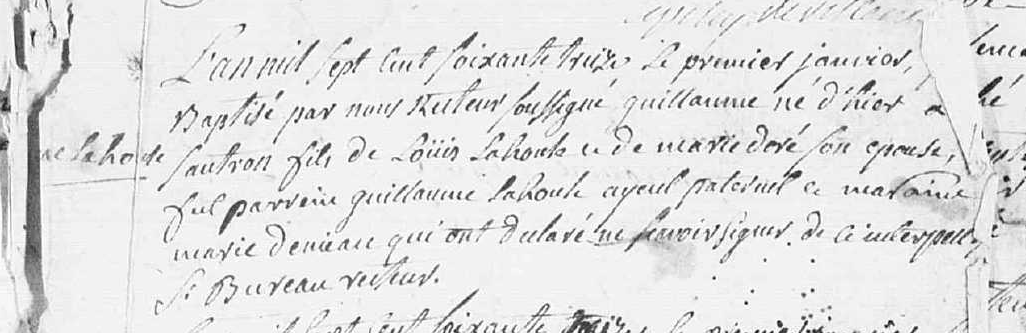 L'an mil sept cent soixante treize le premier janvier,
Baptisé par nous Recteur soussigné guillaume né d'hier a
lahoute sautron fils de Loüis lahoute e de marie doré son epouse,
fut parrein guillaume lahoute ayeul paternel e maraine
marie deniau qui ont déclaré ne scavoir signer de ce interpellés
S. Bureau recteur.
soixante treize le premier